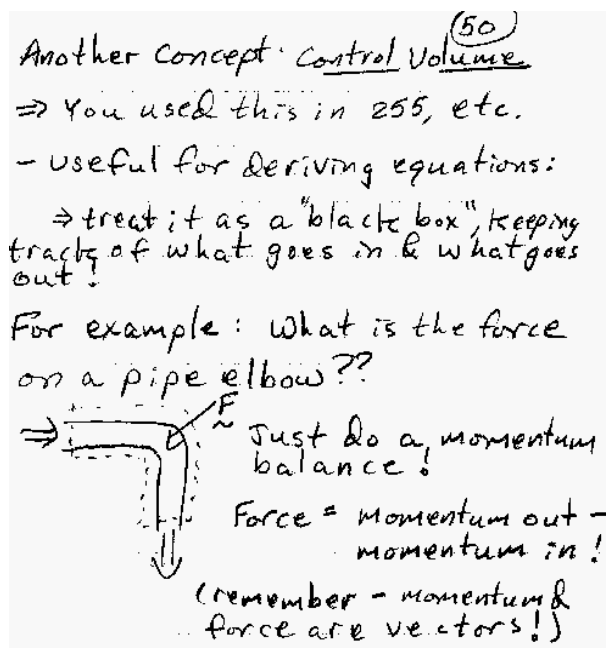 50
Another Concept: Control Volume
⇒ You used this in 255, etc.
- useful for deriving equations:
⇒ treat it as a "black box", keeping
track of what goes in & what goes
out!
For example: What is the force
on a pipe elbow??
F
~
Just do a momentum
balance!
Force = momentum out -
momentum in!
(remember - momentum &
force are vectors!)